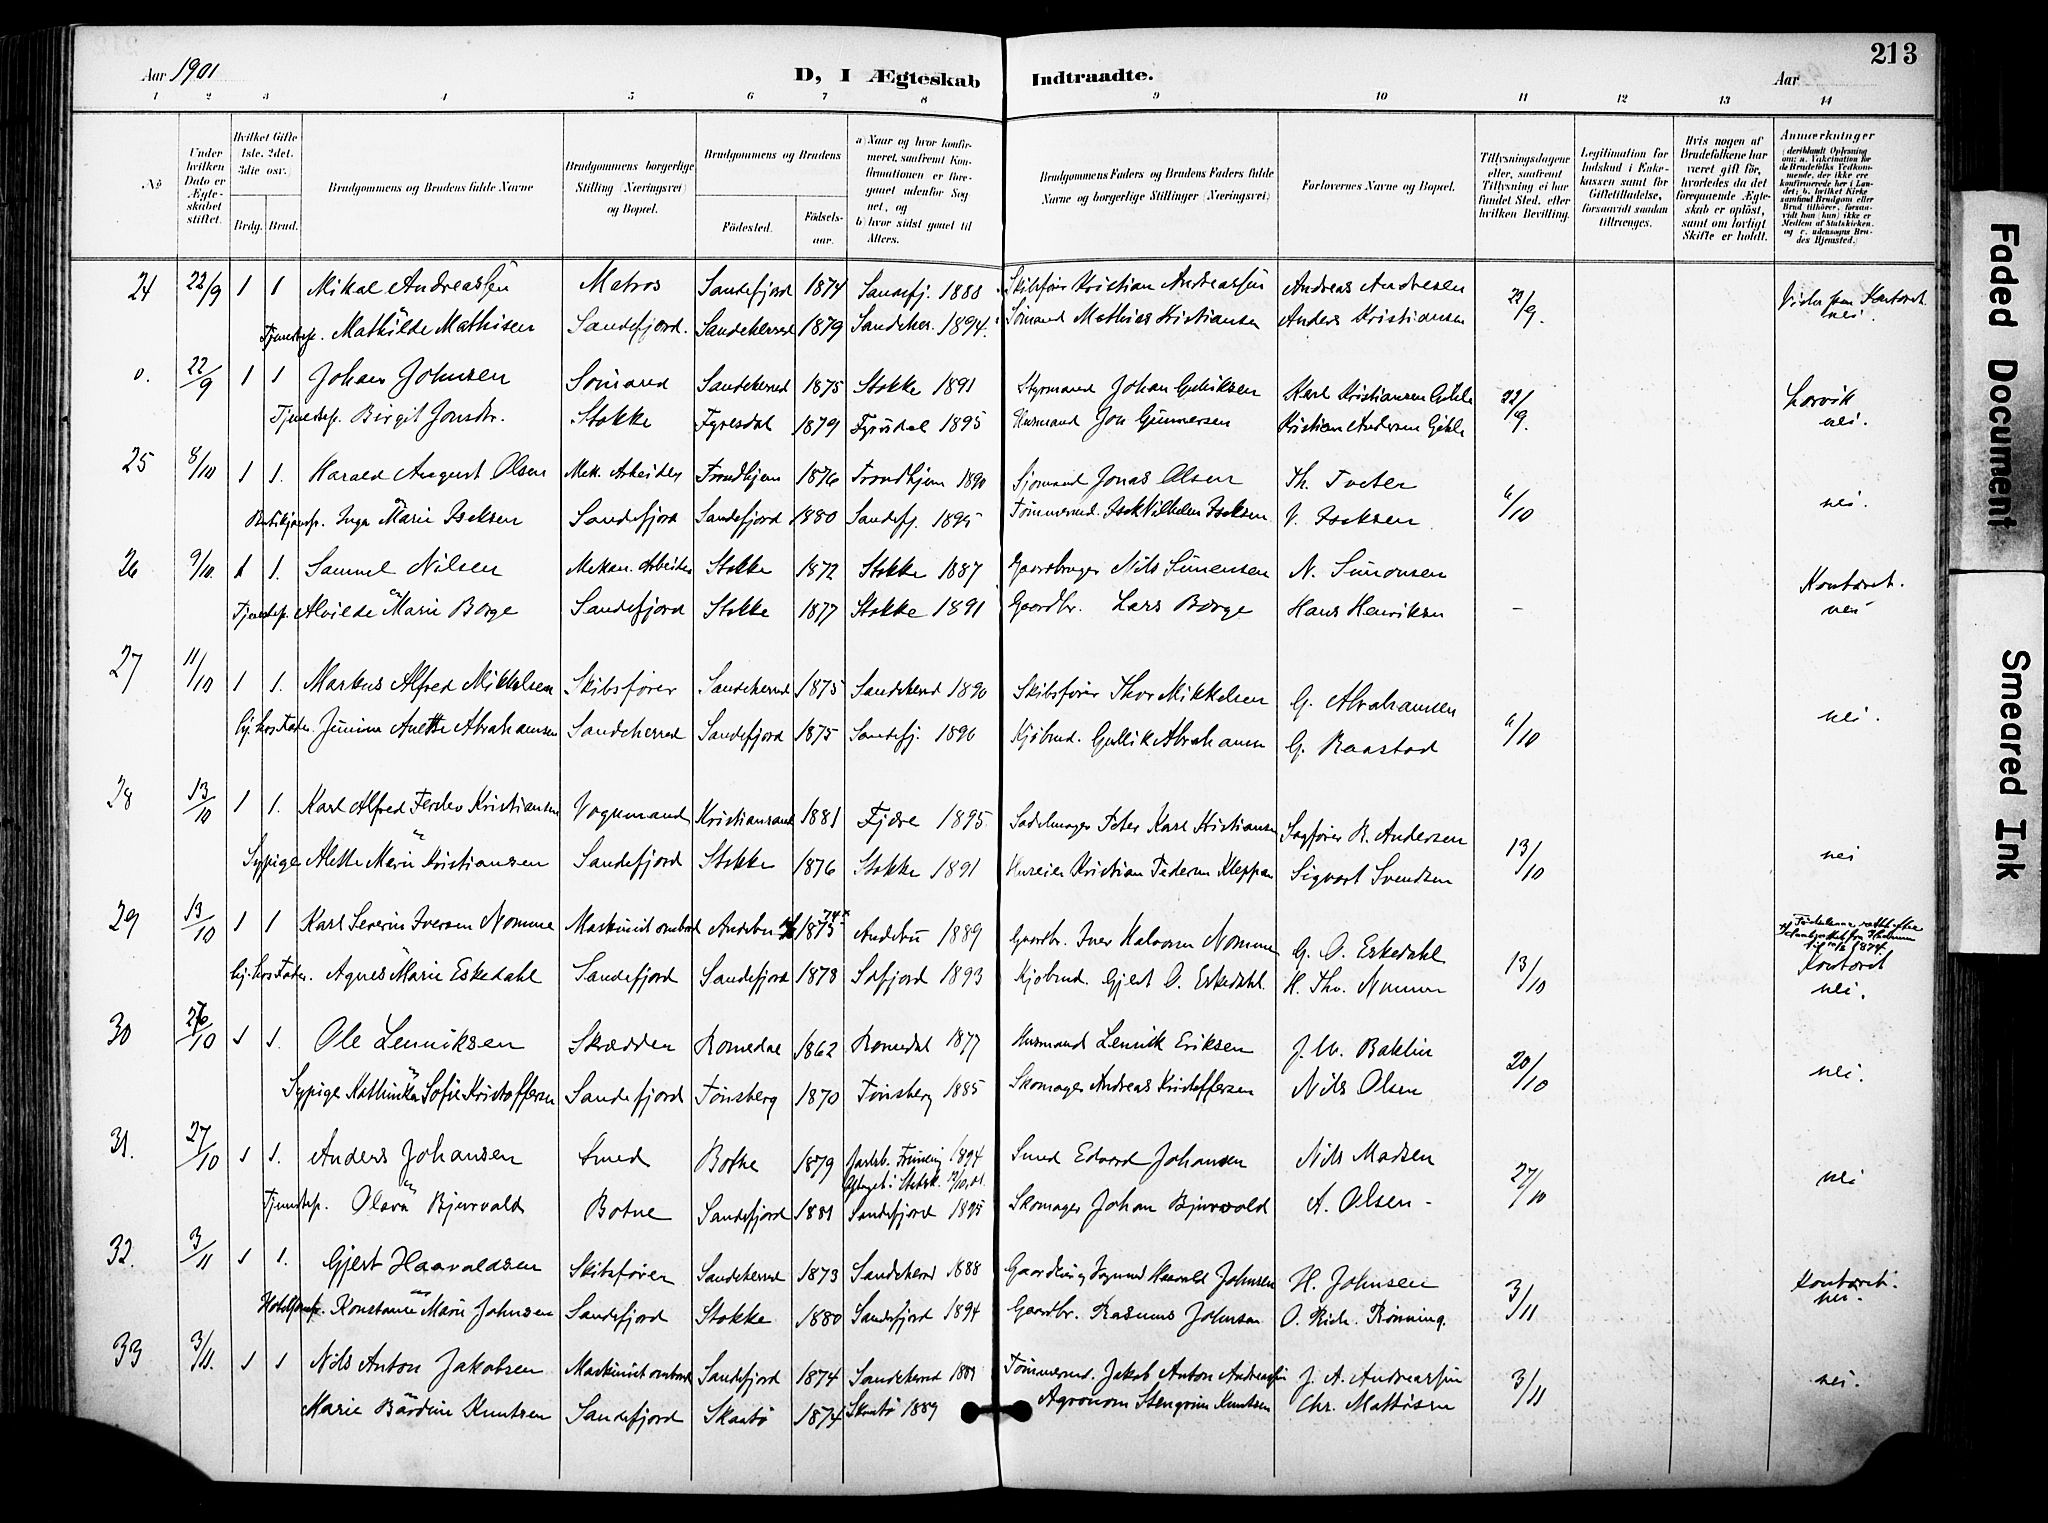 213
Aar 1901
D, I Ægteskab
Indtraadte.
Aar
1 2 3 4 5 6 7 8 9 10 11 12 13 14
No
Under hvilken Dato er Ægteskabet stiftet.
Hvilket Gifte 1ste. 2det. 3die osv.)
Brdg. Brud.
Brudgommens og Brudens fulde Navne
Brudgommens borgerlige Stilling (Næringsvei) og Bopæl.
Brudgommens og Brudens
Fødested.
Fødselsaar.
a) Naar og hvor konfirmeret, saafremt Konfirmationen er foregaaet udenfor Sognet, og
b) hvor sidst gaaet til Alters.
Brudgommens Faders og Brudens Faders fulde Navne og borgerlige Stillinger (Næringsvei)
Forlovernes Navne og Bopæl.
Tillysningsdagene eller, saafremt Tillysning ei har fundet Sted, efter hvilken Bevilling.
Legitimation for Indskud i Enkekassen samt for Giftetilladelse, forsaavidt saadan tiltrænges.
Hvis nogen af Brudefolkene har været gift før, hvorledes da det foregaaende Ægteskab er opløst, samt om lovligt Skifte er holdt.
Anmærkninger (deriblandt Oplysning om: a. Vakcination for de Brudefolks Vedkommende, der ikke ere konfirmerede her i Landet; b. hvilket Kirkesamfund Brudgom eller Brud tilhører, forsaavidt han (hun) ikke er Medlem af Statskirken, og c. udensogns Brudes Hjemsted.)
24 22/9 1 1 Mikal Andreassen Matros Sandefjord 1874 Sandefj. 1888 Skibsfører Kristian Andreassen Andreas Andresen 22/9. Kontoret
Tjenestep. Mathilde Mathisen Sandefjord. Sandeherred 1879 Sandeher. 1894. Sømand Mathias Kristiansen Anders Kristiansen nei.
0. 22/9 1 1 Johan Johnsen Sømand Sandeherred 1875 Stokke 1891 Styrmand Johan Guliksen Karl Kristiansen 22/9. Larvik
Tjenestep. Birgit Jonsdr. Stokke Fyresdal 1879 Fyrisdal 1895 Husmand Jon Gunnersen Kristian Andersen nei.
25 8/10 1 1. Harald August Olsen Mek. Arbeider Trondhjem 1876 Trondhjem 1890 Sjømand Jonas Olsen Th. Tveter 6/10
Butikjomfr. Inga Marie Iseksen Sandefjord Sandefjord 1880 Sandefj. 1895 Tømmermd. Isek Vilhelm Iseksen V. Iseksen nei.
26 9/10. 1 1. Samuel Nilsen Mekan. Arbeider Stokke 1872 Stokke 1887 Gaardbruger Nils Simensen N. Simonsen Kontoret.
Tjenestep. Alvilde Marie Borge Sandefjord Stokke 1877 Stokke 1891 Gaardbr. Lars Borge Hans Henriksen – nei
27 11/10 1 1. Markus Alfred Mikkelsen Skibsfører Sandeherred 1875 Sandeherred 1890 Skibsfører Thor Mikkelsen G. Abrahamsen 6/10
hj. hos Fader. Anette Abrahamsen Sandeherred Sandefjord 1875 Sandefj. 1890 Kjøbmd. Gullik Abrahamsen G. Raastad nei.
28 13/10 1 1. Karl Alfred Kristiansen Vognmand Kristiansand 1881 Fjære 1895 Sadelmager Peter Karl Kristiansen Sagfører R. Andersen 13/10
Sypige Alette Marie Kristiansen Sandefjord Stokke 1876 Stokke 1891 Huseier Kristian Pedersen Kleppan Sigvart Svendsen nei
29 13/10 1 1 Karl Severin Iversen Nomme Maskinist ombord Andebu 1875 74 x Andebu 1889 Gaardbr. Iver Halvorsen Nomme G. O. Eskedahl 13/10
1874.
hj. hos Fader. Agnes Marie Eskedahl Sandefjord Sandefjord 1878 Sdfjord 1893 Kjøbmd. Gjert O. Eskedahl. H. Thv. Kontoret nei.
30 26/10 1 1. Ole Lenriksen Skrædder Romedal 1862 Romedal 1877 Husmand Lenrik Eriksen J. M. Baklin 20/10
Sypige Kathinka Sofie Kristoffersen Sandefjord Tønsberg 1870 Tønsberg 1885 Skomager Andreas Kristoffersen Nils Olsen nei.
31. 27/10 1 1. Anders Johansen Smed Botne 1879 Jarlsb. Frimenig. 1894 Smed Edvard Johansen Nils Madsen 27/10
Optaget i Statsk. 01.
Tjenestep. Olava Bjurvald Botne Sandefjord 1881 Sandefjord 1895 Skomager Johan Bjurvald A. Olsen – nei
32. 3/11 1 1. Gjert Haavaldsen Skibsfører Sandeherred 1873 Sandeherred 1888 Haavald Johnsen H. Johnsen 3/11 Kontoret.
Konstanse Marie Johnsen Sandefjord Stokke 1880 Sandefjord 1894 Gaardbr. Rasmus Johnsen O. Rich. Rønning. nei.
33 3/11. 1 1 Nils Anton Jakobsen Maskinist ombord Sandefjord 1874 Sandeherred 1889 Tømmermd. Jakob Anton Andreassen J. A. Andreassen 3/11 nei.
Marie Bärdine Knutsen Sandefjord Skaatø 1874 Skaatø 1889 Agronom Stengrim Knutsen Chr. Mathisen
Faded Document
Smeared Ink